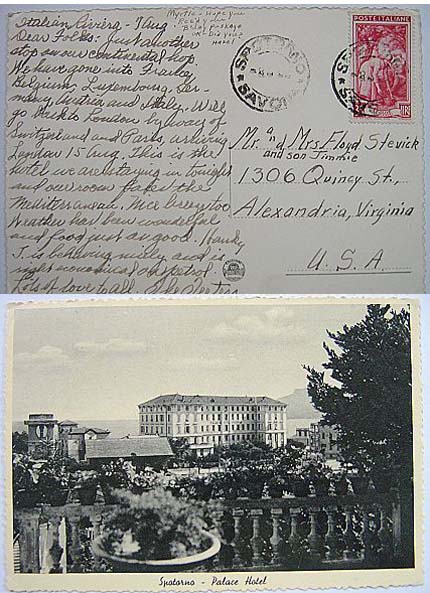 Italian Riviera - 7 Aug.
Dear Folks - Just another
stop on our continental hop.
We have gone into France,
Belgium, Luxembourg, Ger-
many, Austria and Italy. Will
go back to London by way of
Switzerland and Paris, arriving
London 15 Aug. This is the
hotel we are staying in tonight
and our room faces the
Mediterranean. Nice breeze too
Weather has been wonderful
and food just as good. Hanky
J. is behaving nicely and is
Lots of love to all.
Myrtie - Hope you
hotel
POSTE ITALIANE
SPOTORNO
SAVONA
Mr. and Mrs Floyd Stevick
and son Jimmie
1306 Quincy St.,
Alexandria, Virginia
U. S. A.
Spotorno - Palace Hotel